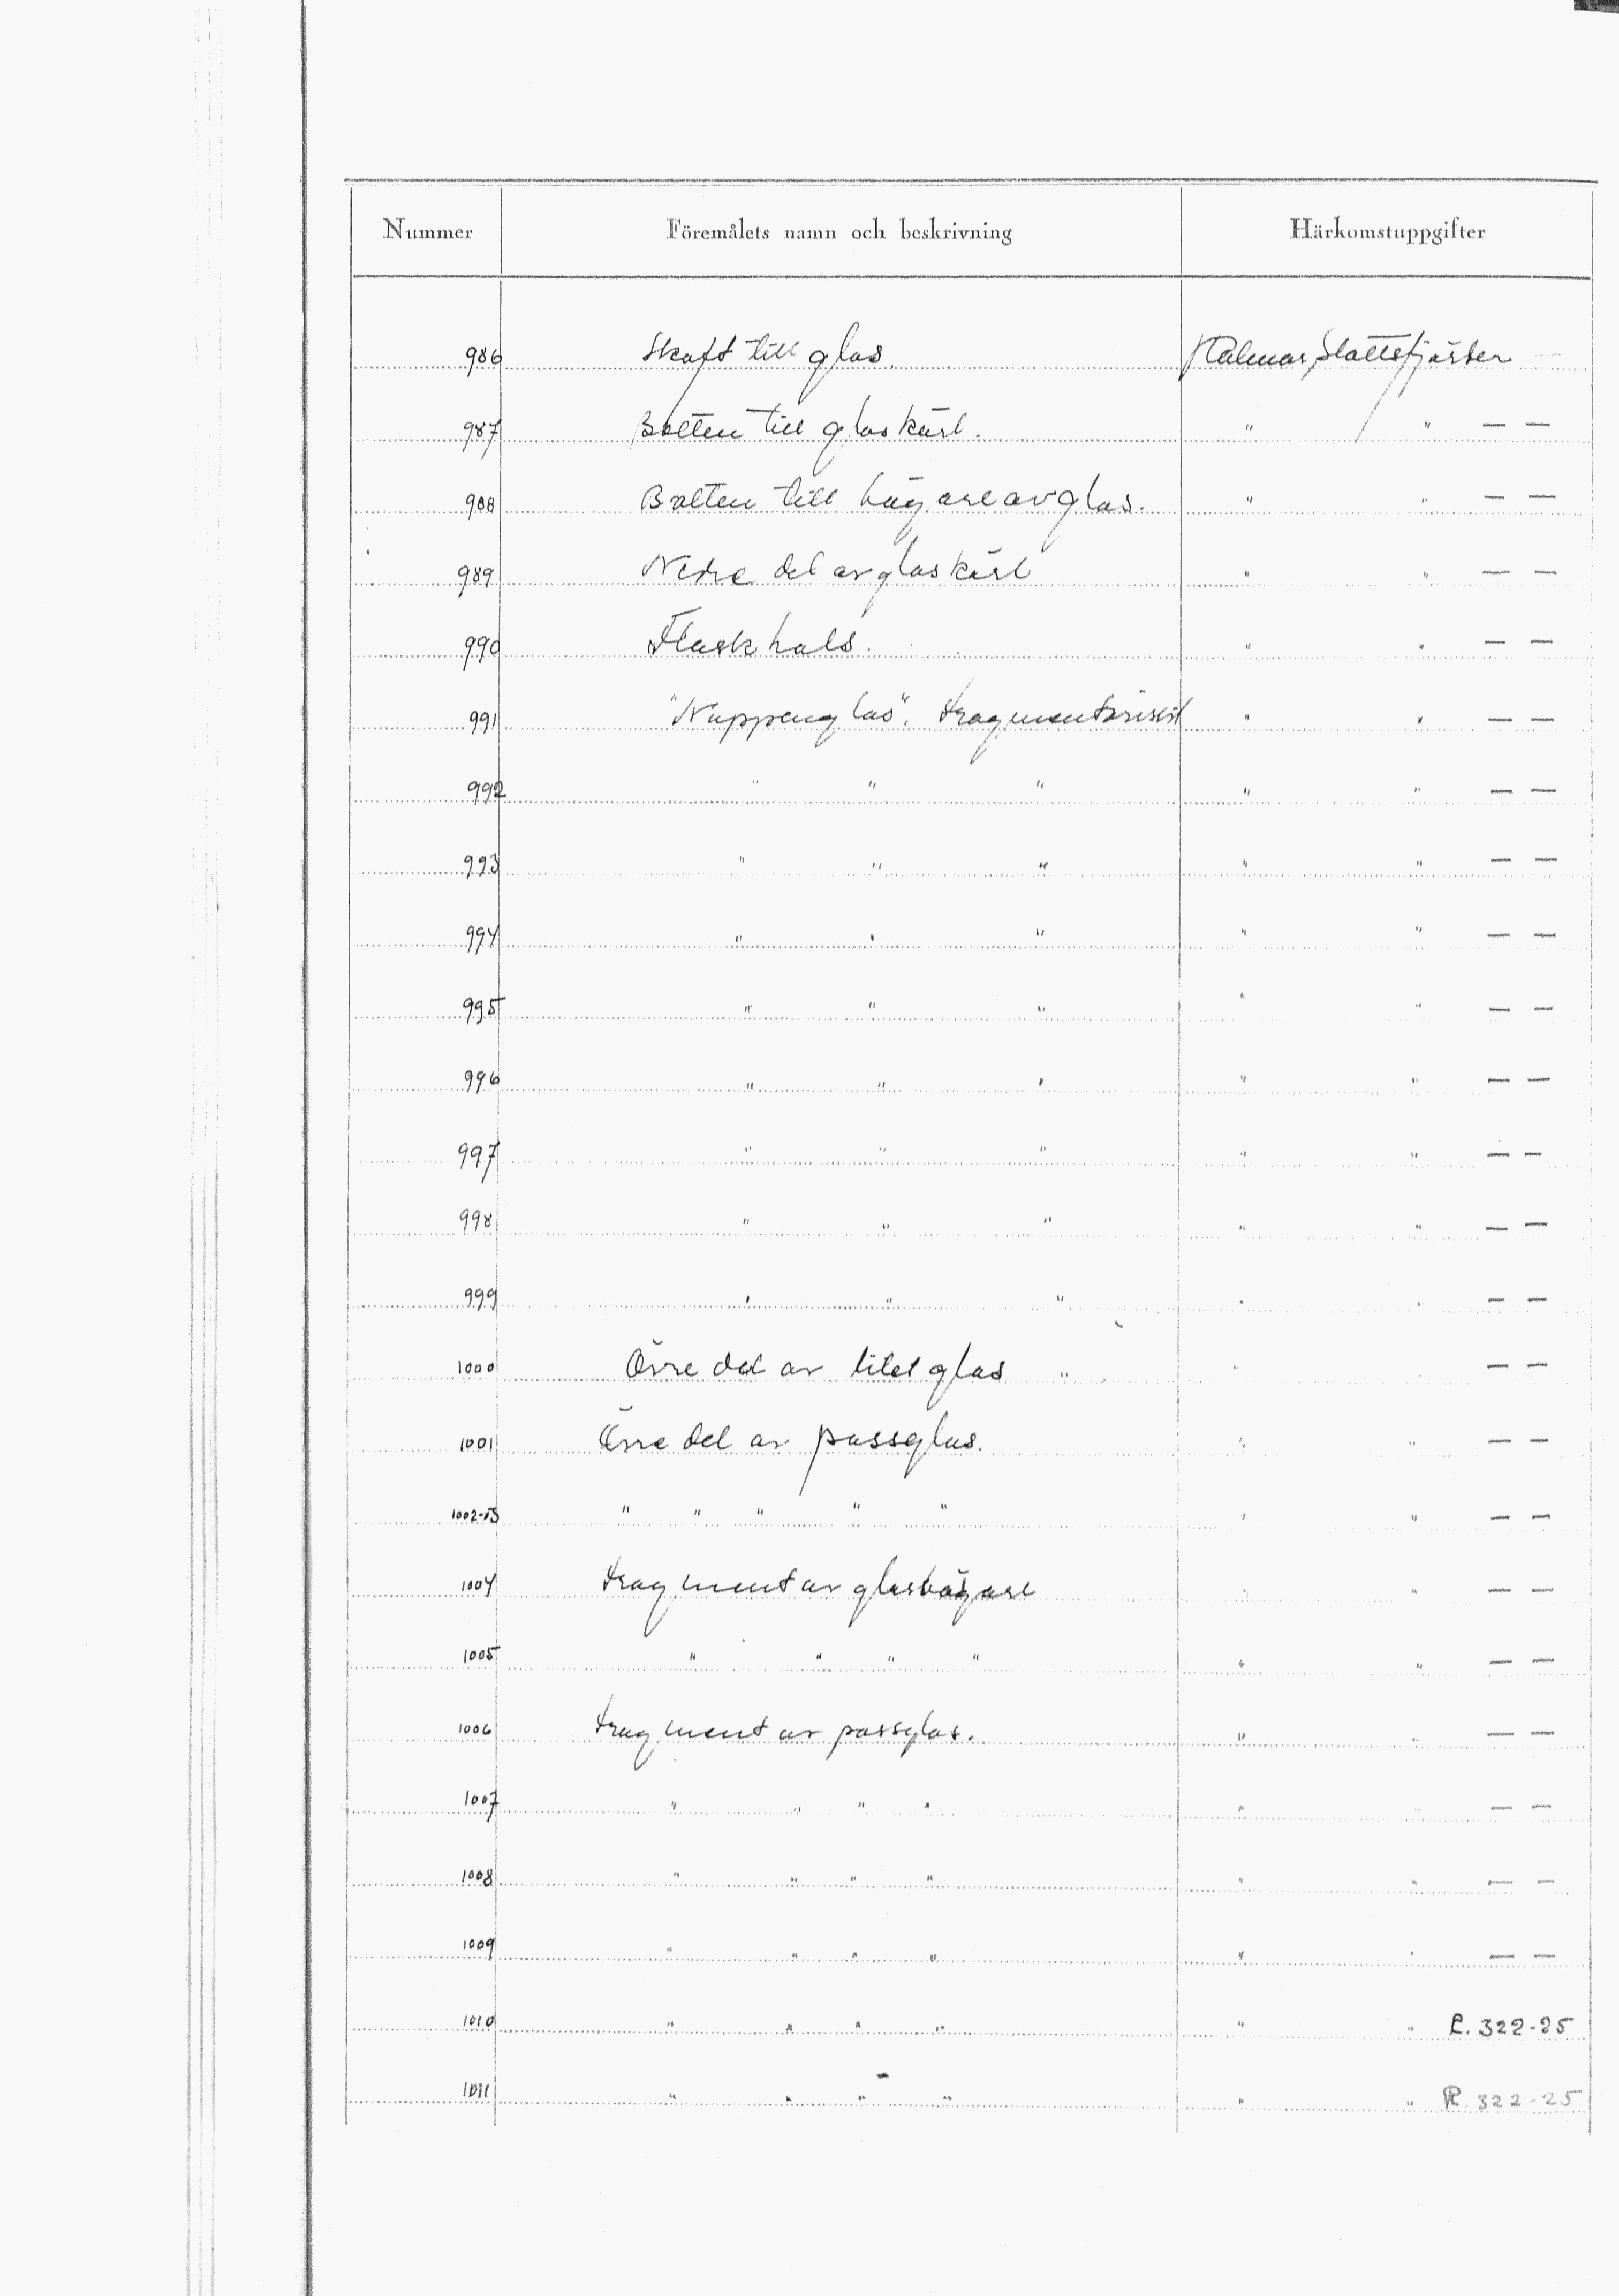 Nummer Föremålets namn och beskrivning Härkomstuppgifter
986 Skaft till glas. Kalmar Slottsfjärden —
987 Botten till glaskärl. " " — —
988 Botten till bägare av glas. " " — —
989 Nedre del av glaskärl " " — —
990 Flaskhals. " " — —
991 "Nuppenglas". fragmentariskt " " — —
992 " " " " " — —
993 " " " " " — —
994 " " " " " — —
995 " " " " " — —
996 " " " " " — —
997 " " " " " — —
998 " " " " " — —
999 " " " " " — —
1000 Övre del av litet glas " " — —
1001 Övre del av passglas. " " — —
1002-03 " " " " " " " — —
1004 fragment av glasbägare " " — —
1005 " " " " " " — —
1006 fragment av passglas. " " — —
1007 " " " " " " — —
1008 " " " " " " — —
1009 " " " " " " — —
1010 " " " " " " R. 322-25
1011 " " " " " " R. 322-25